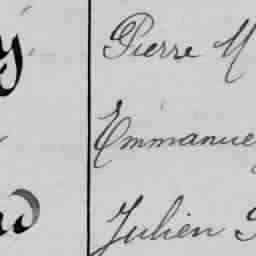 Pierre M
Emmanue
Julien